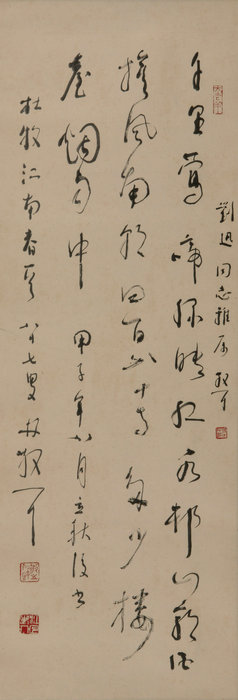 劉迅同志雅属 散耳
千里鶯啼綠映紅水村山郭酒
旗風南朝四百八十寺多少樓
臺烟雨中 甲子年八月立秋後書
杜牧江南春 八十七叟林散耳